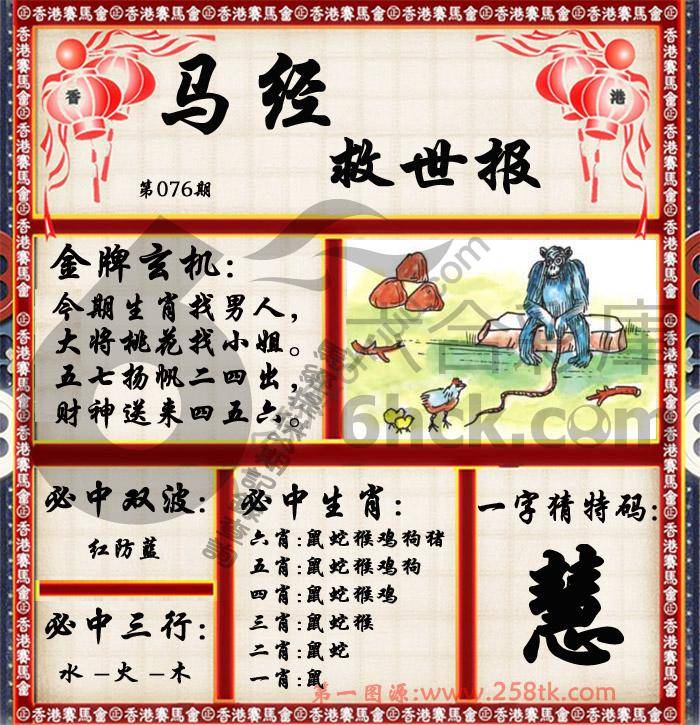 香港賽馬會
香 港
马经
救世报
第076期
金牌玄机:
今期生肖找男人,
大将桃花找小姐。
五七扬帆二四出,
财神送来四五六。
六合

库
6hck.com
必中双波:
红防蓝
必中三行:
水–火–木
必中生肖:
六肖:鼠蛇猴鸡狗猪
五肖:鼠蛇猴鸡狗
四肖:鼠蛇猴鸡
三肖:鼠蛇猴
二肖:鼠蛇
一肖:鼠
一字猜特码:
慧
第一图源:www.258tk.com